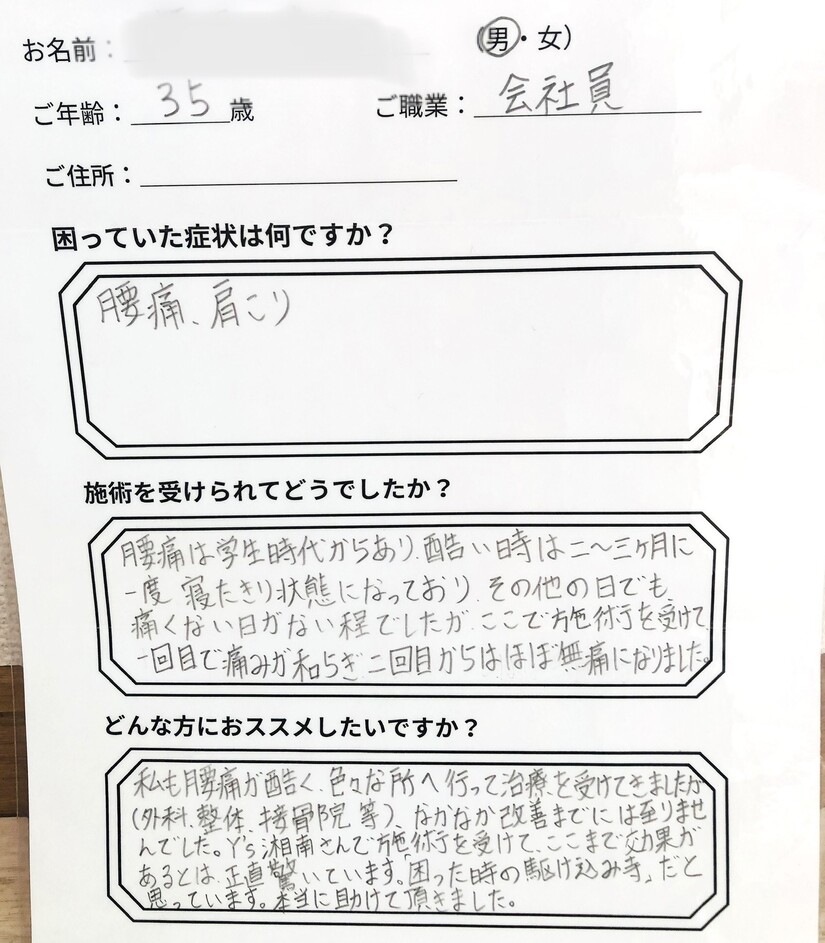 お名前：
(男・女)
ご年齢： 35 歳
ご職業： 会社員
ご住所：
困っていた症状は何ですか？
腰痛、肩こり
施術を受けられてどうでしたか？
腰痛は学生時代からあり、酷い時は二〜三ヶ月に
一度 寝たきり状態になっており、その他の日でも、
痛くない日がない程でしたが、ここで施術を受けて、
一回目で痛みが和らぎ二回目からはほぼ無痛になりました。
どんな方におススメしたいですか？
私も腰痛が酷く、色々な所へ行って治療を受けてきましたが
(外科、整体、接骨院 等)、なかなか改善までには至りませ
んでした。Y's湘南さんで施術を受けて、ここまで効果が
あるとは、正直驚いています。「困った時の駆け込み寺」だと
思っています。本当に助けて頂きました。